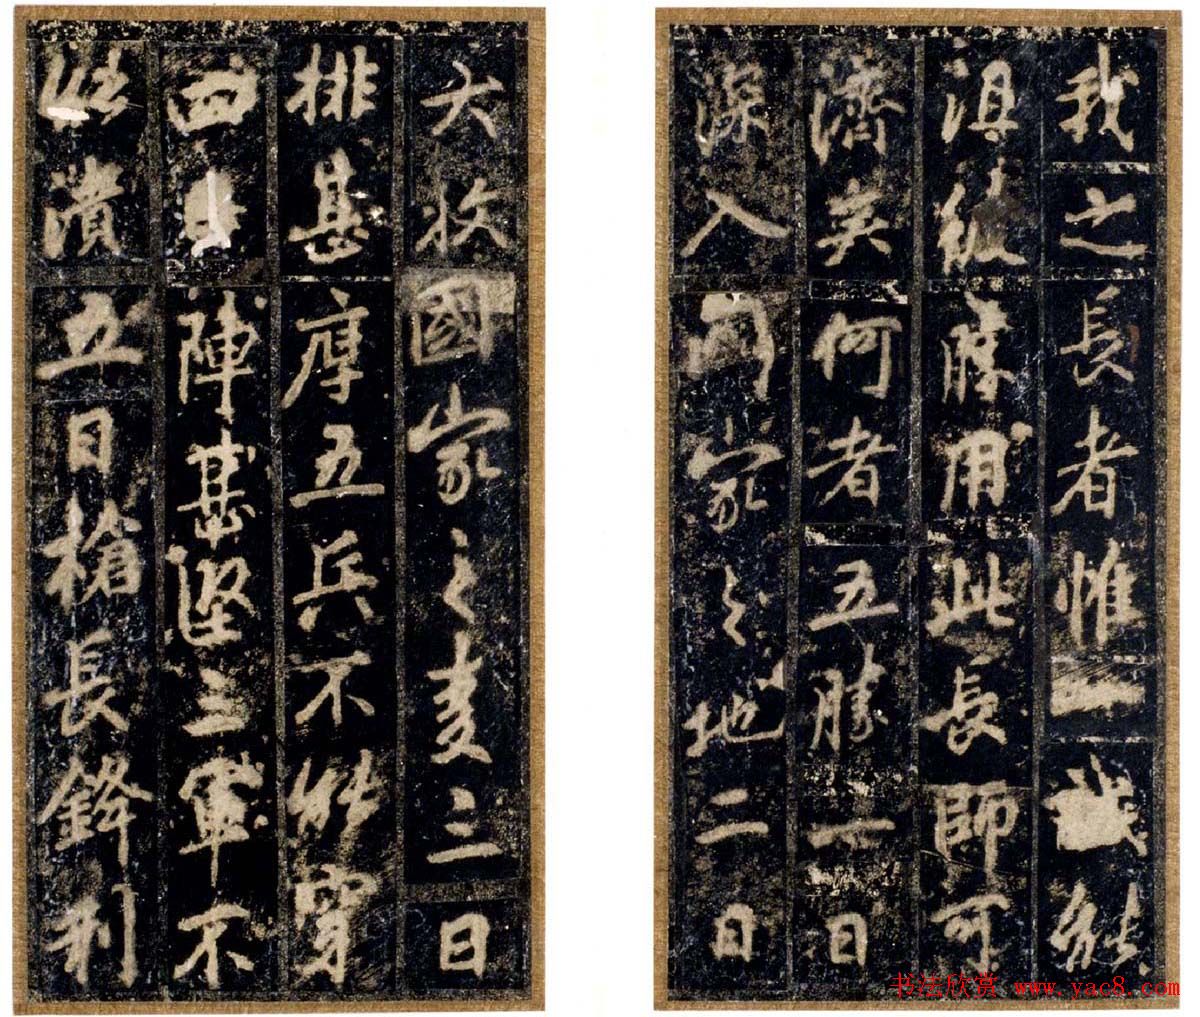 我之長者惟一我能
沮彼勝用此長師可
濟矣何者五勝一曰
深入國家之地二曰
大收國家之麦三曰
排甚摩五兵不能穿
四曰陣甚堅三軍不
能潰五曰槍長鋒利
书法欣赏 www.yac8.com